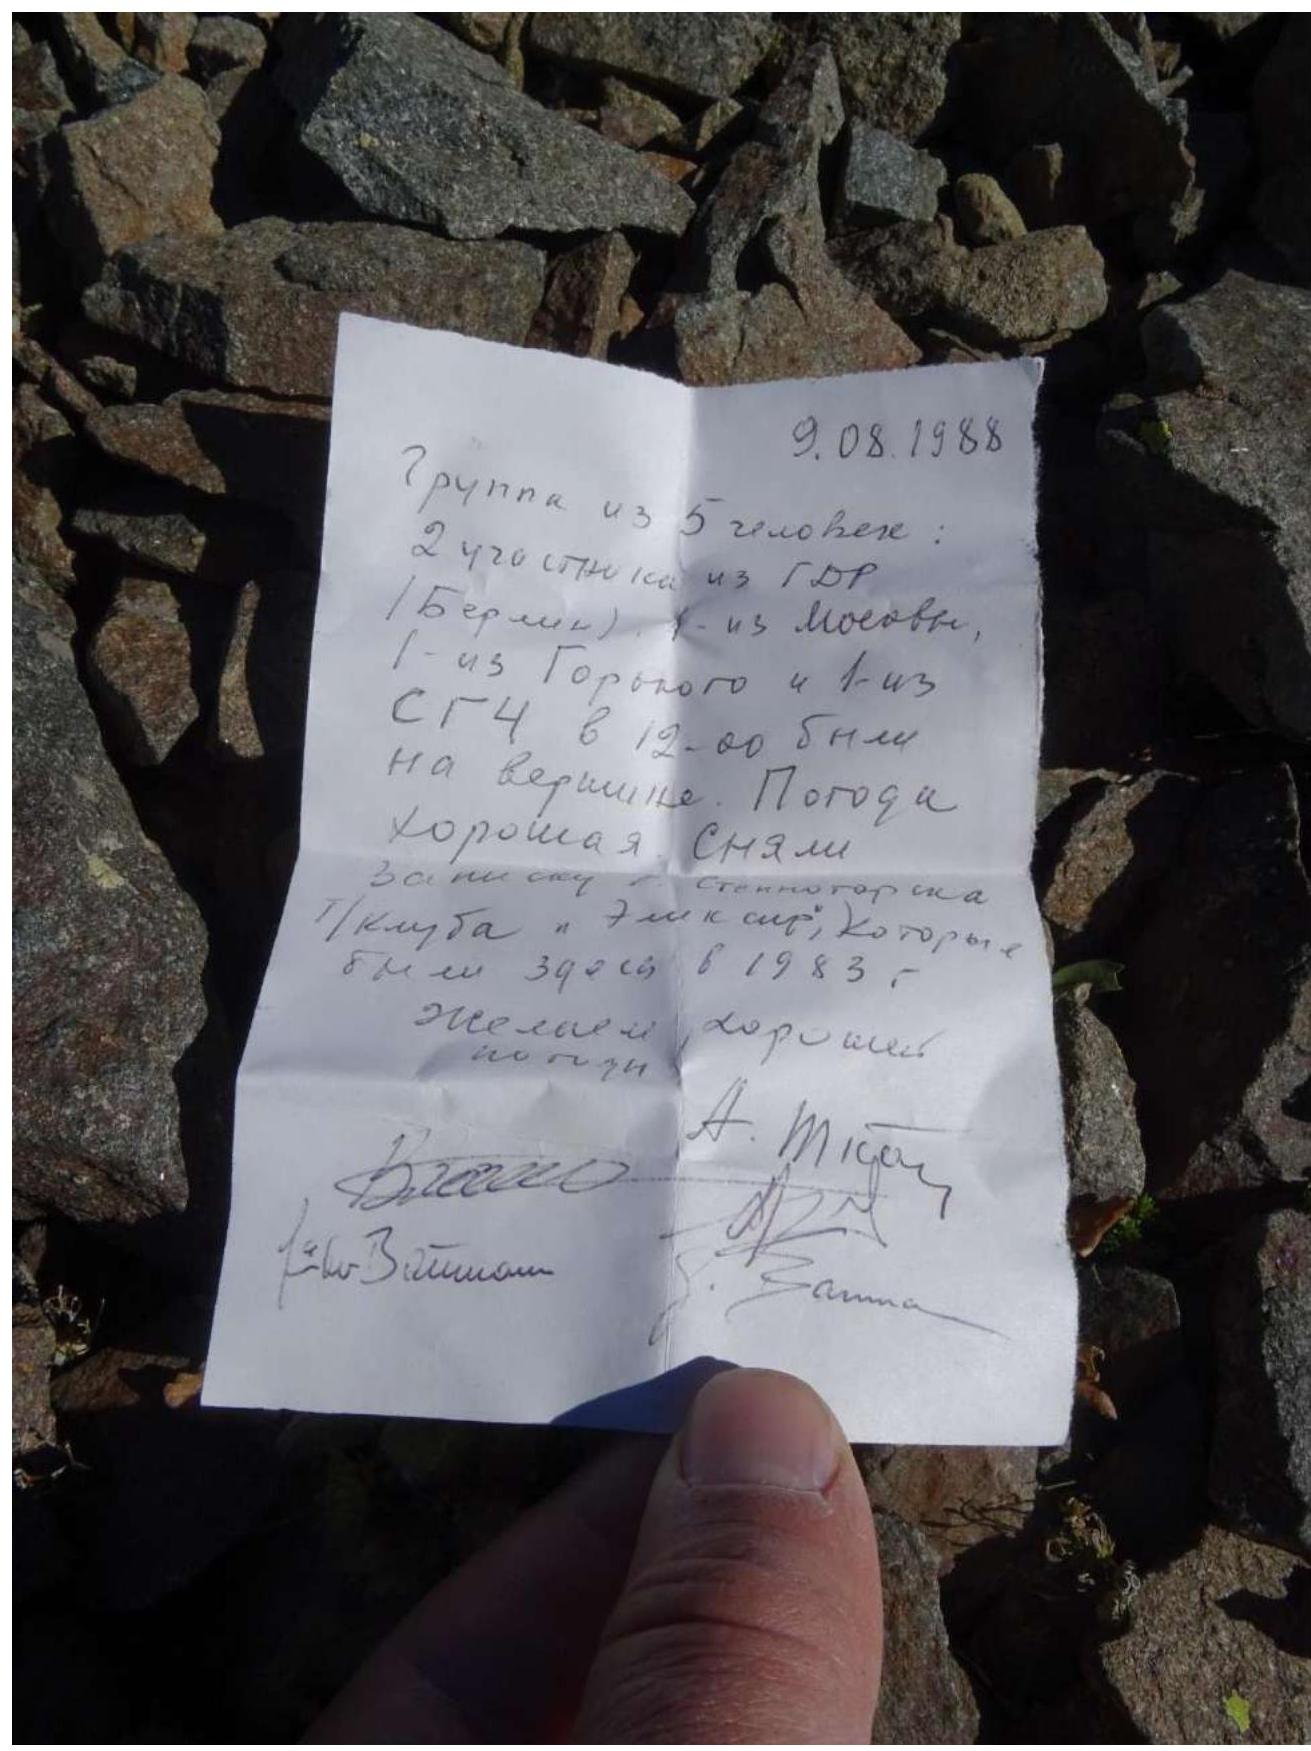 9.08.1988
Группа из 5 человек:
2 участника из ГДР
(Берлин), 1-из Москвы,
1-из Горького и 1-из
СГЧ в 12-00 были
на вершине. Погода
хорошая. Сняли
записку г. Степногорска
т/клуба "Эликсир", которые
были здесь в 1983 г
Желаем хорошей
погоды
А.